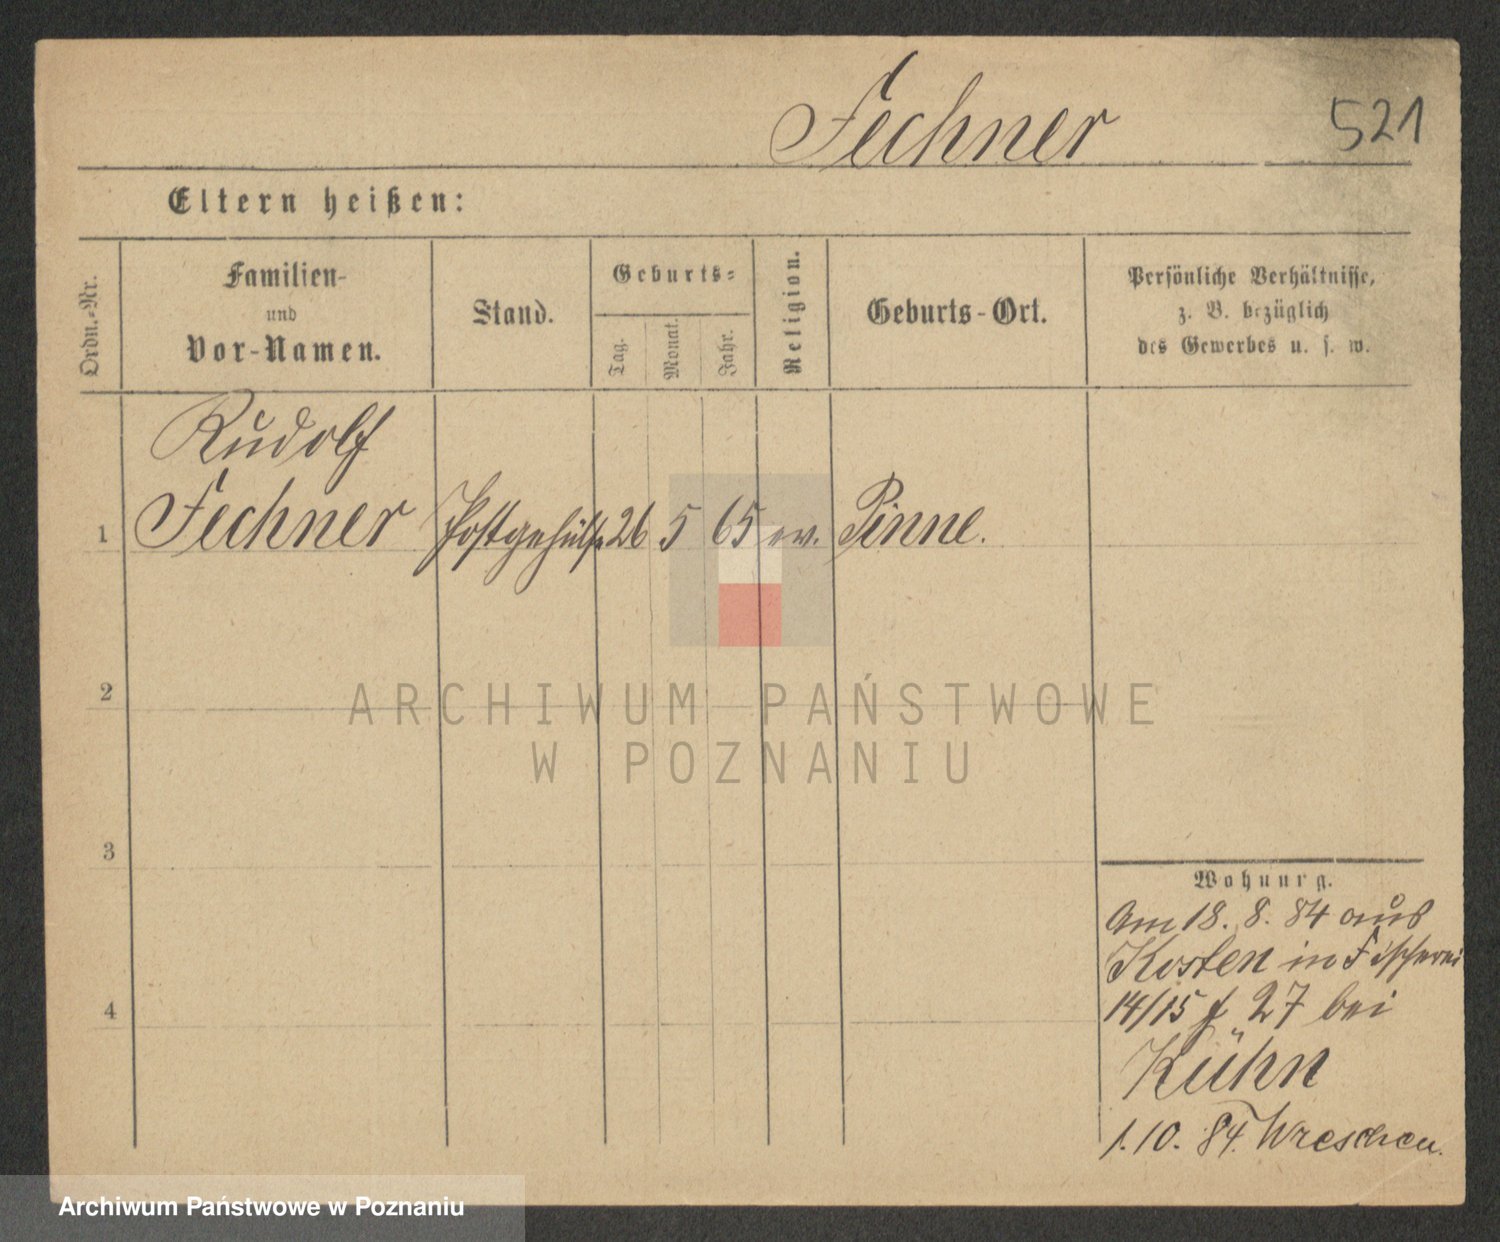 Fechner
521
Eltern heißen:
Ordn.-Nr.
Familien-
und
Vor-Namen.
Stand.
Geburts-
Tag.
Monat.
Jahr.
Religion.
Geburts-Ort.
Persönliche Verhältnisse,
z. B. bezüglich
des Gewerbes u. s. w.
Rudolf
1 Fechner Postgehülfe 26 5 65 ev. Pinne.
2
ARCHIWUM PAŃSTWOWE
W POZNANIU
3
Wohnung.
Am 18. 8. 84 aus
Kosten in Fischerei
4
14/15 f 27 bei
Kühn
1. 10. 84. Wreschen.
Archiwum Państwowe w Poznaniu